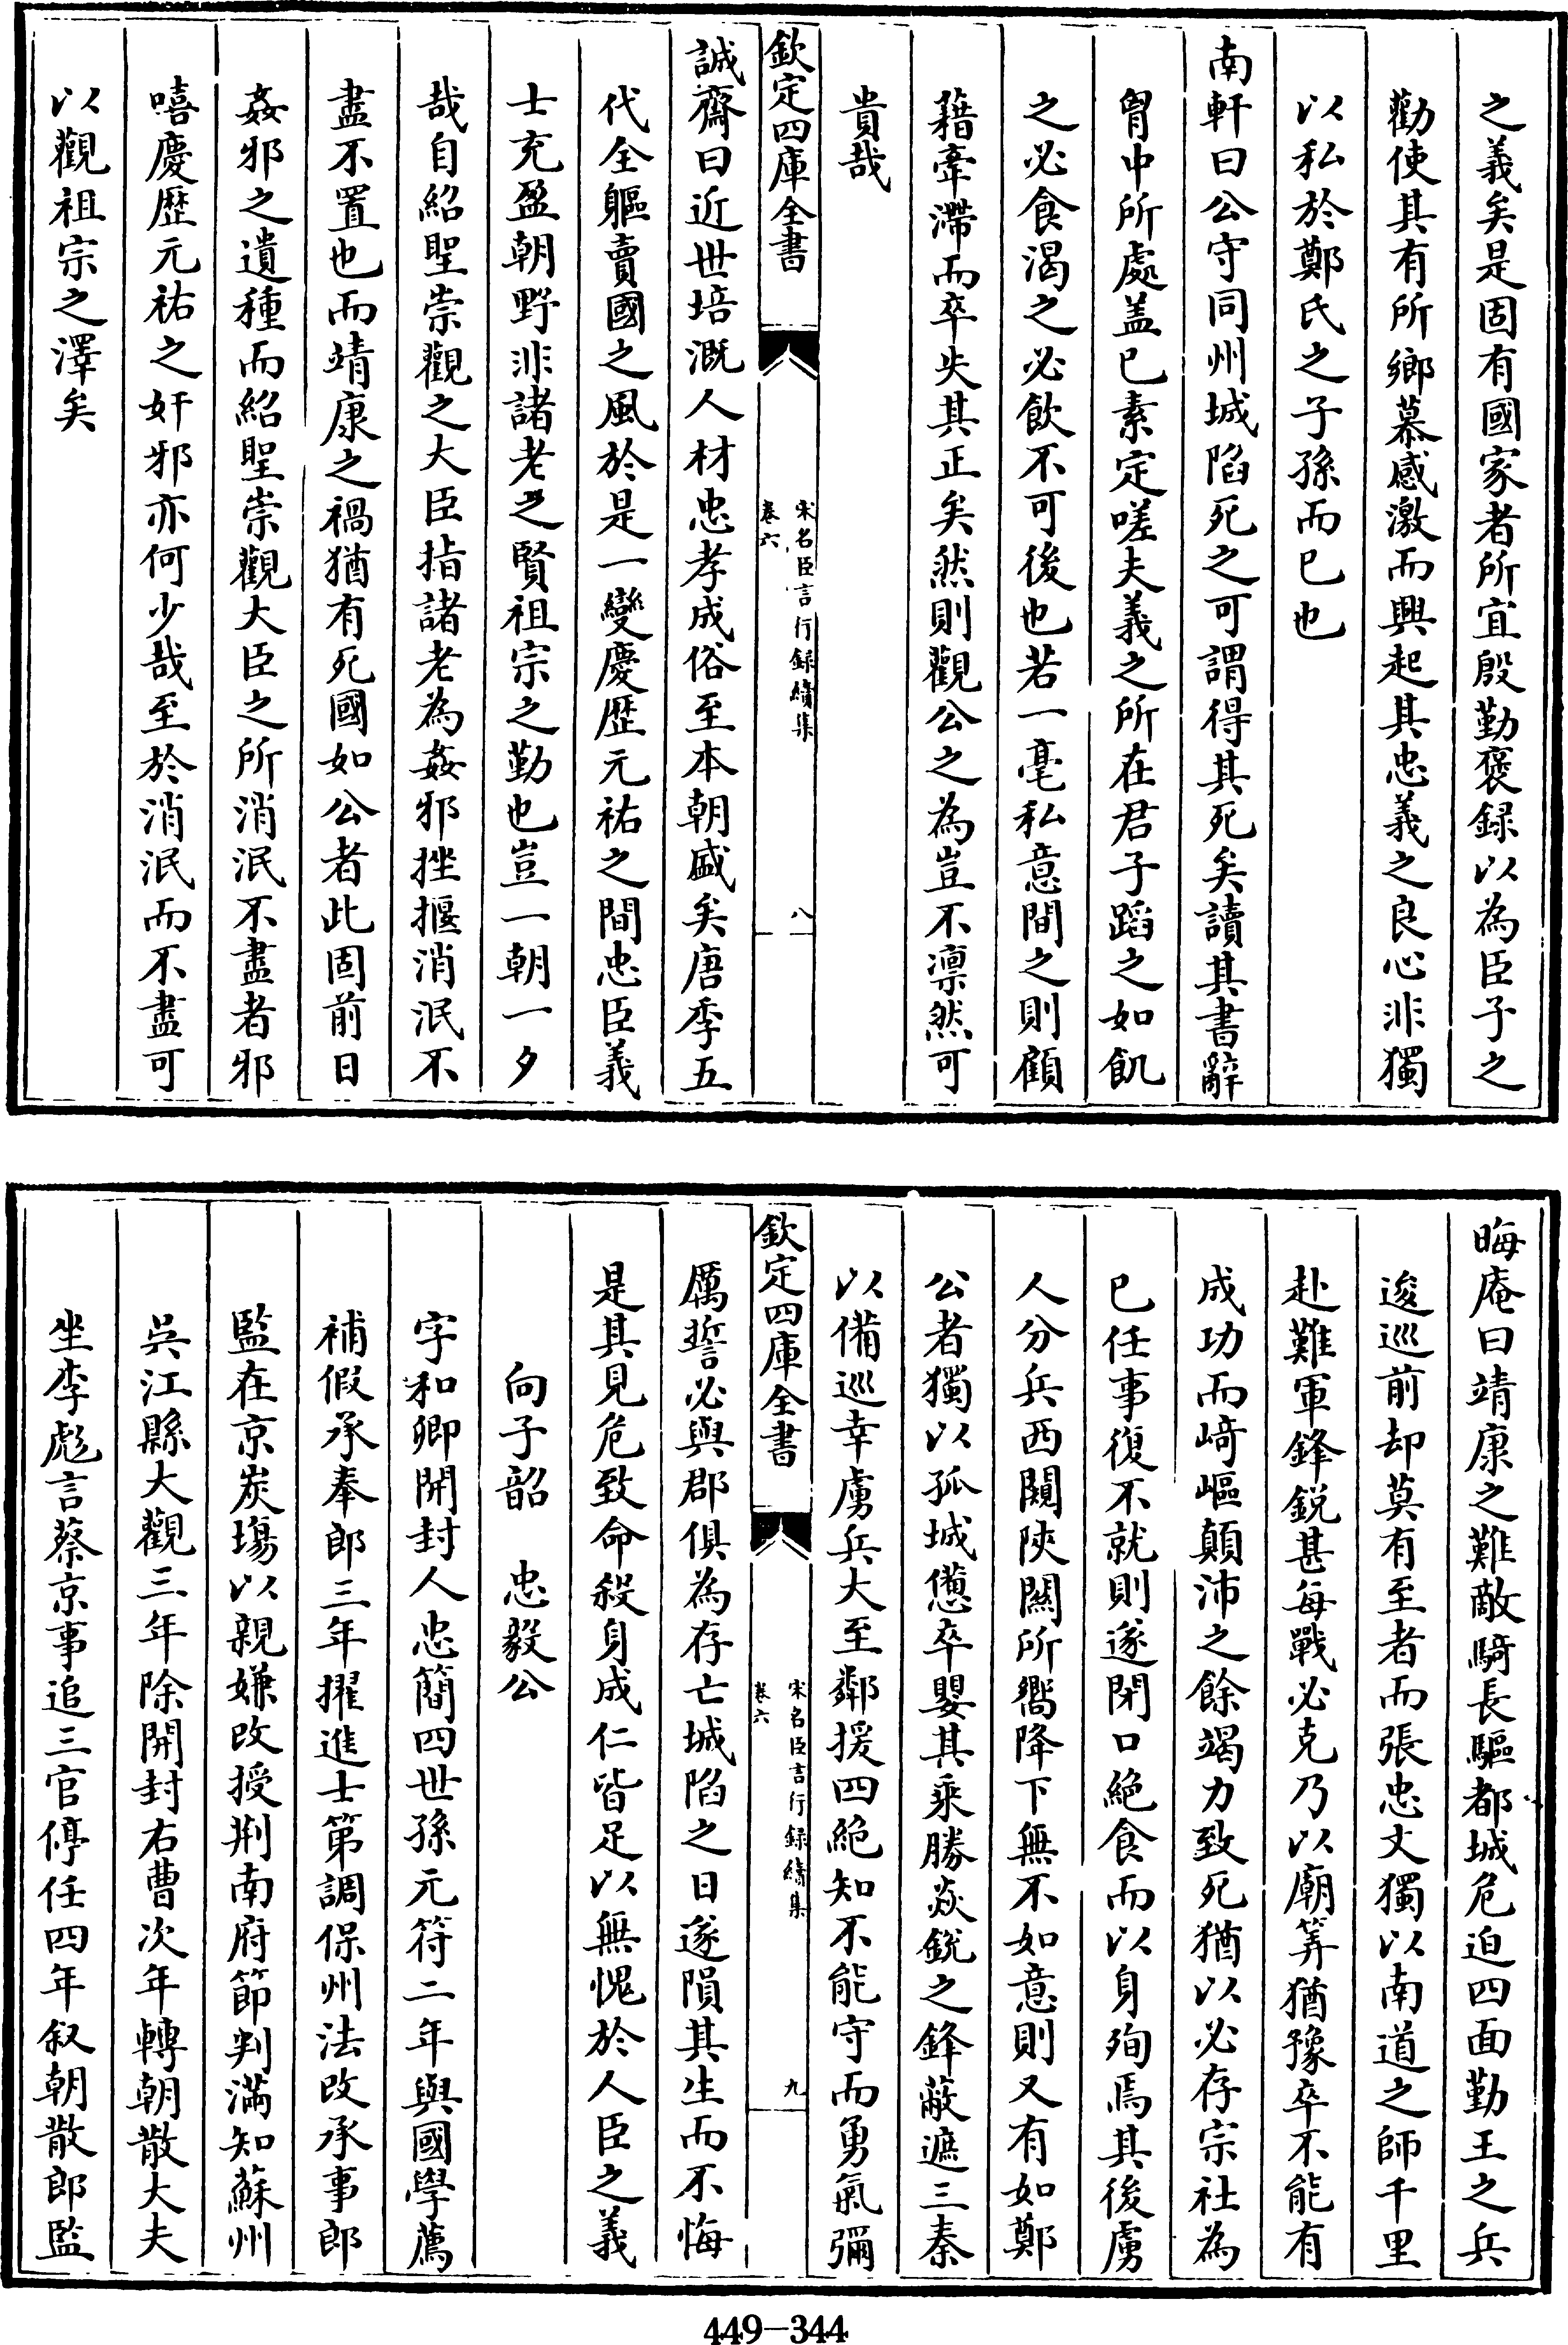 之義矣是固有國家者所宜殷勤褒録以為臣子之
勸使其有所鄉慕感激而興起其忠義之良心非獨
以私於鄭氏之子孫而已也
南軒曰公守同州城陷死之可謂得其死矣讀其書辭
胷中所處盖已素定嗟夫義之所在君子蹈之如飢
之必食渴之必飲不可後也若一毫私意間之則顧
藉牽滯而卒失其正矣然則觀公之為豈不凛然可
貴哉
欽定四庫全書
宋名臣言行録續集
卷六
八
誠齋曰近世培溉人材忠孝成俗至本朝盛矣唐季五
代全軀賣國之風於是一變慶歴元祐之間忠臣義
士充盈朝野非諸老之賢祖宗之勤也豈一朝一夕
哉自紹聖崇觀之大臣指諸老為姦邪挫揠消泯不
盡不置也而靖康之禍猶有死國如公者此固前日
姦邪之遺種而紹聖崇觀大臣之所消泯不盡者邪
嘻慶歴元祐之奸邪亦何少哉至於消泯而不盡可
以觀祖宗之澤矣
晦庵曰靖康之難敵騎長驅都城危迫四面勤王之兵
逡巡前却莫有至者而張忠文獨以南道之師千里
赴難軍鋒鋭甚每戰必克乃以廟筭猶豫卒不能有
成功而崎嶇顛沛之餘竭力致死猶以必存宗社為
已任事復不就則遂閉口絶食而以身殉焉其後虜
人分兵西闚陜關所嚮降下無不如意則又有如鄭
公者獨以孤城憊卒嬰其乘勝焱銳之鋒蔽遮三秦
以備巡幸虜兵大至鄰援四絶知不能守而勇氣彌
欽定四庫全書
宋名臣言行録續集
卷六
九
厲誓必與郡俱為存亡城陷之日遂隕其生而不悔
是其見危致命殺身成仁皆足以無愧於人臣之義
向子韶　忠毅公
字和卿開封人忠簡四世孫元符二年與國學薦
補假承奉郎三年擢進士第調保州法改承事郎
監在京炭塲以親嫌改授荆南府節判滿知蘇州
吳江縣大觀三年除開封右曹次年轉朝散大夫
坐李彪言蔡京事追三官停任四年叙朝散郎監
449-344